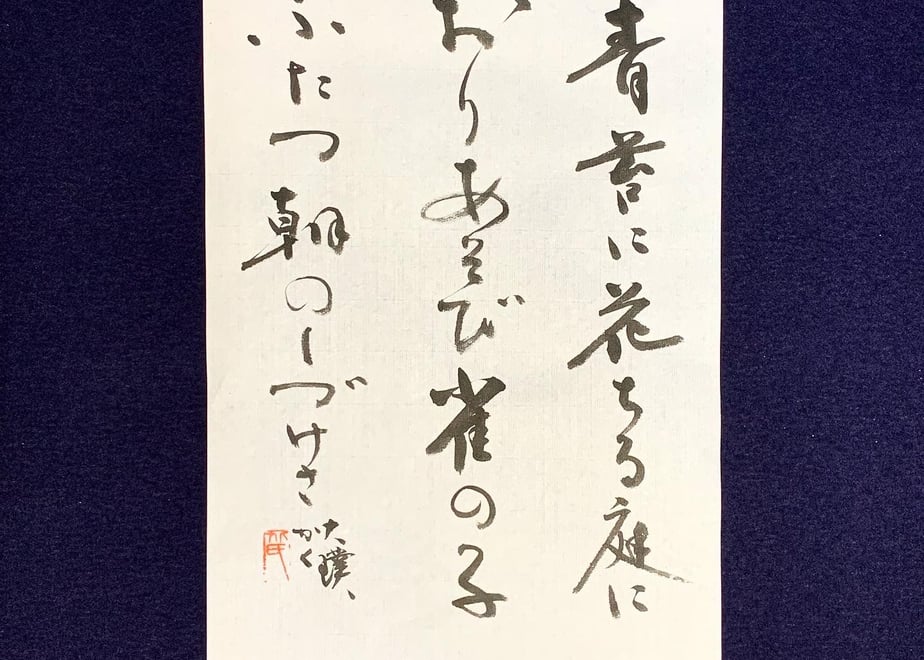 青苔に花ちる庭に
おりあそび雀の子
ふたつ朝のしづけさ
大璞、
かく